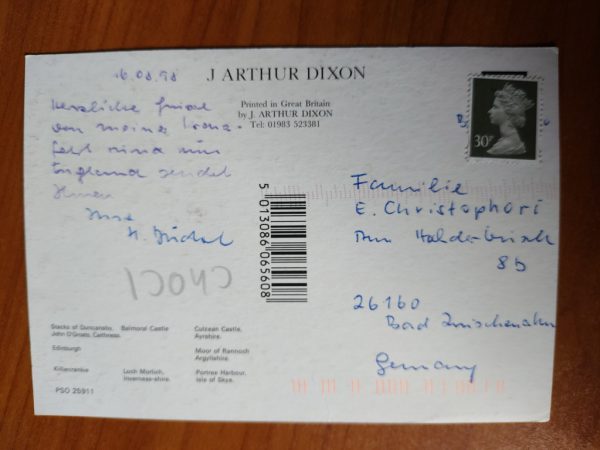 16.08.98
J ARTHUR DIXON
Printed in Great Britain
by J. ARTHUR DIXON
Tel: 01983 523381
30P
Herzliche Grüsse
von meiner
rund um
England sendet
Ihnen
Ihre
H.
Familie
E. Christophori
Am
8b
26160
Bad Zwischenahn
Germany
5 013086 065608
Stacks of Duncansby,
John O'Groats, Caithness.
Balmoral Castle
Culzean Castle,
Ayrshire.
Edinburgh
Moor of Rannoch
Argyllshire.
Killiecrankie
Loch Morlich,
Inverness-shire.
Portree Harbour,
Isle of Skye.
PSO 25911